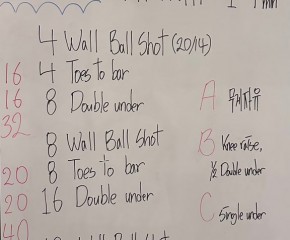 1 1 min
4 Wall Ball Shot (20/14)
16 4 Toes to bar
16 8 Double under A
32
8 Wall Ball Shot B Knee raise,
20 8 Toes to bar ½ Double under
20 16 Double under C Single under
40